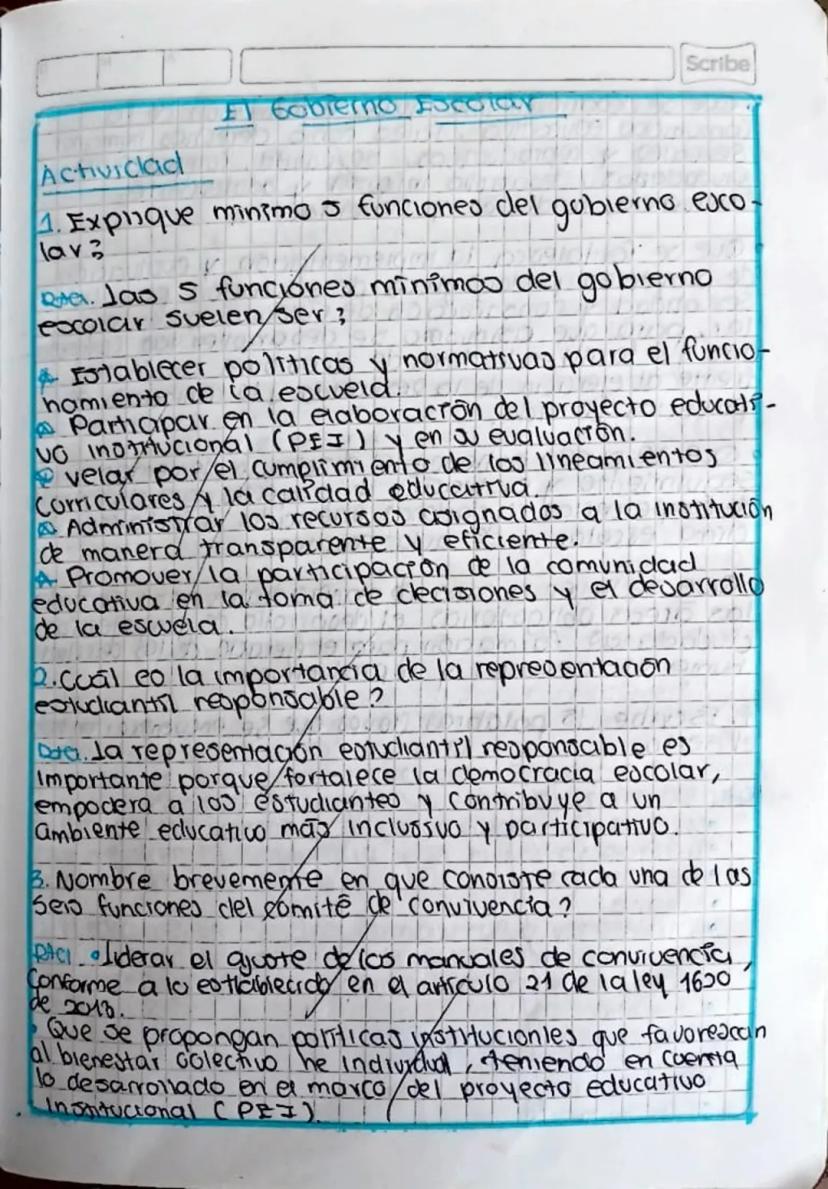 Scribe
El Gobierno Escolar
Actividad
1. Explique minimo 5 funciones del gobierno esco-
lar?
Rta. las 5 funciones mínimas del gobierno
escolar suelen ser;
Establecer políticas y normativas para el funcio-
namiento de la escuela.
Participar en la elaboración del proyecto educati-
vo institucional (PEI) y en su evaluación.
velar por el cumplimiento de los lineamientos
Corriculares y la calidad educativa.
Administrar los recursos asignados a la institución
de manera transparente y eficiente.
Promover la participación de la comunidad
educativa en la toma de decisiones y el desarrollo
de la escuela.
2. Cuál es la importancia de la representación
estudiantil responsable?
Rta. la representación estudiantil responsable es
importante porque fortalece la democracia escolar,
empodera a los estudiantes y contribuye a un
ambiente educativo más inclusivo y participativo.
3. Nombre brevemente en que consiste cada una de las
seis funciones del comité de convivencia?
Rta. • liderar el ajuste de los manuales de convivencia,
Conforme a lo establecido en el artículo 21 de la ley 1620
de 2013.
• Que se propongan políticas institucionles que favorescan
al bienestar colectivo he individual, teniendo en cuenta
lo desarrollado en el marco del proyecto educativo
Institucional (PEI).